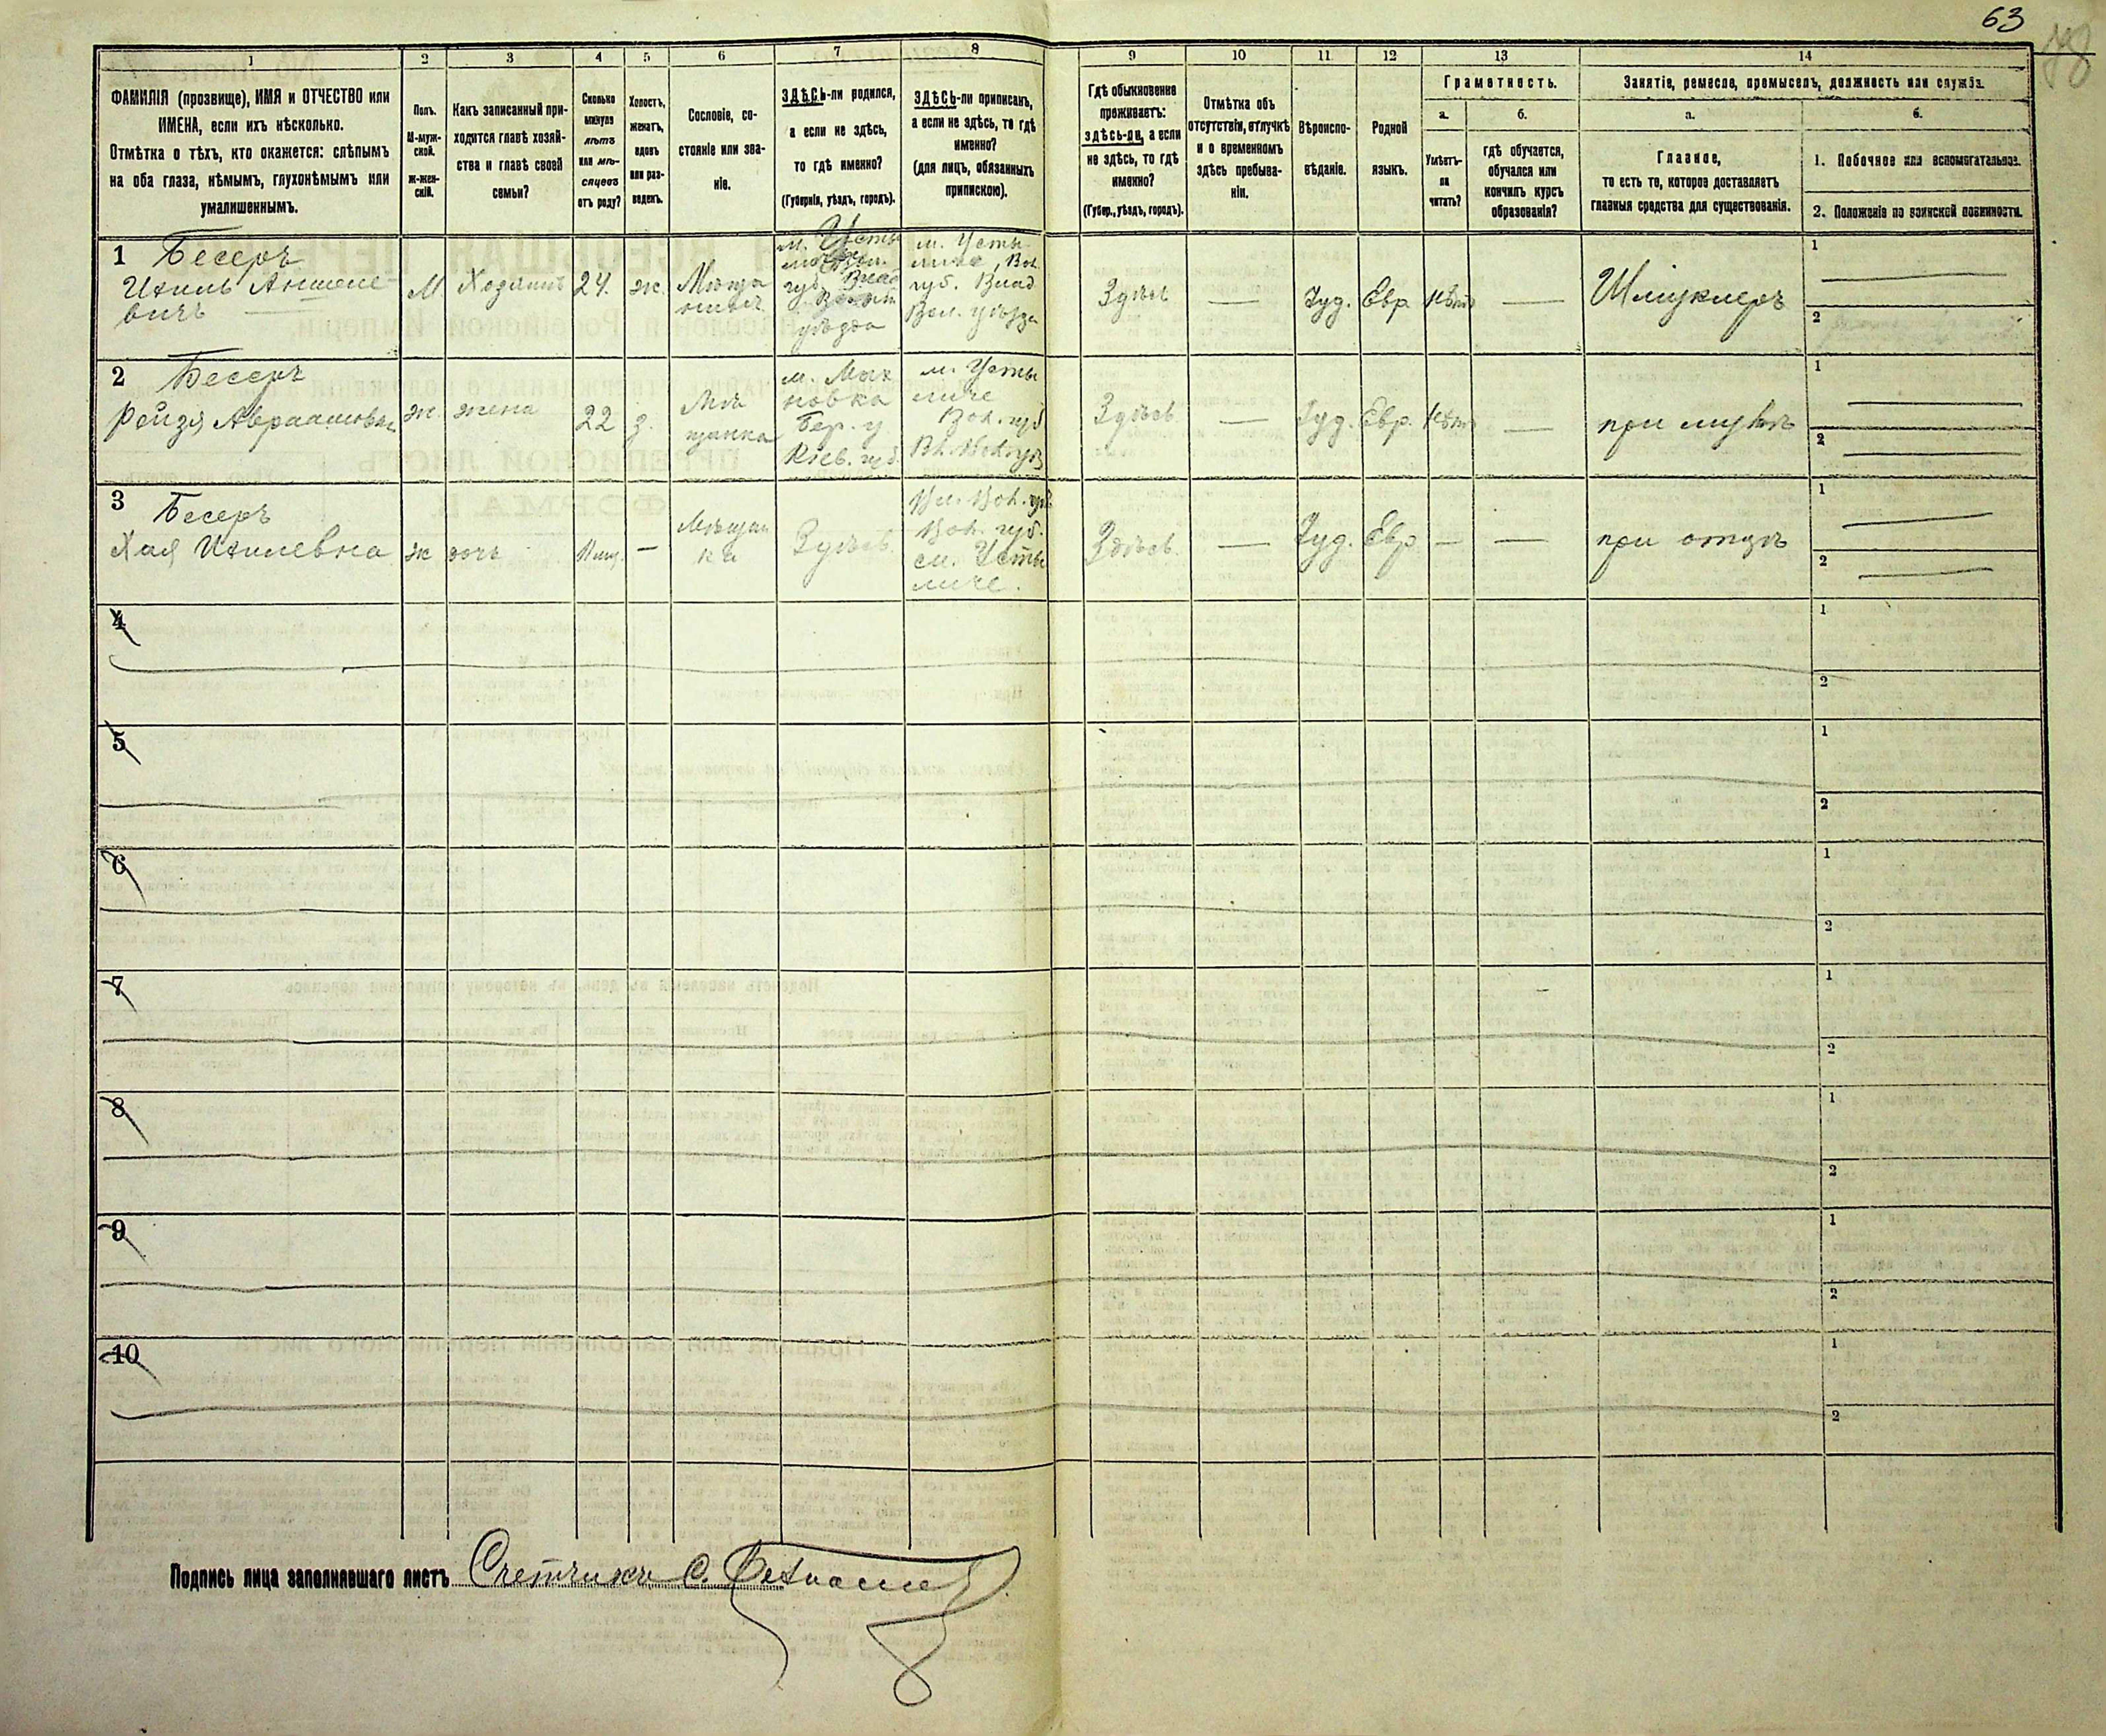 63
78
1
2
3
4
5
6
7
8
9
10
11
12
13
14
ФАМИЛІЯ (прозвище), ИМЯ и ОТЧЕСТВО или
ИМЕНА, если ихъ нѣсколько.
Отмѣтка о тѣхъ, кто окажется: слѣпымъ
на оба глаза, нѣмымъ, глухонѣмымъ или
умалишеннымъ.
Полъ.
М-муж-
ской.
ж-жен-
скій.
Какъ записанный при-
ходится главѣ хозяй-
ства и главѣ своей
семьи?
Сколько
минуло
лѣтъ
или мѣ-
сяцевъ
отъ роду?
Холостъ,
женатъ,
вдовъ
или раз-
веденъ.
Сословіе, со-
стояніе или зва-
ніе.
ЗДѢСЬ-ли родился,
а если не здѣсь,
то гдѣ именно?
(Губернія, уѣздъ, городъ).
ЗДѢСЬ-ли приписанъ,
а если не здѣсь, то гдѣ
именно?
(для лицъ, обязанныхъ
припискою).
Гдѣ обыкновенно
проживаетъ:
здѣсь-ли, а если
не здѣсь, то гдѣ
именно?
(Губер., уѣздъ, городъ).
Отмѣтка объ
отсутствіи, отлучкѣ
и о временномъ
здѣсь пребыва-
ніи.
Вѣроиспо-
вѣданіе.
Родной
языкъ.
Грамотность.
а.
Умѣетъ-
ли
читать?
б.
гдѣ обучается,
обучался или
кончилъ курсъ
образованія?
Занятіе, ремесло, промыселъ, должность или служба.
а.
Главное,
то есть то, которое доставляетъ
главныя средства для существованія.
б.
1. Побочное или вспомогательное.
2. Положеніе по воинской повинности.
1 Бесеръ
Ихиль Аншеле-
вичъ
М
Хозяинъ
24.
ж.
Мѣща
нинъ
м. Усты
губ. Влад
уѣзда
м. Усты-
личе, Вол.
губ. Влад
Вол. уѣзда
Здѣсь
Іуд.
Евр
Нѣтъ
Шмуклеръ
1
2
2 Бесеръ
Рейзя Авраамовна
ж.
жена
22
з.
Мѣ
щанка
м. Мах
новка
Бер. у
Кіев. губ.
м. Усты
личе
Вол. губ
Здѣсь
Іуд.
Евр.
Нѣтъ
при мужѣ
1
2
3 Бесеръ
Хая Ихилевна
ж
дочь
Мѣщан
ка
Здѣсь
Вол. губ.
м. Усты
личе.
Здѣсь
Іуд.
Евр
при отцѣ
1
2
4
1
2
5
1
2
6
1
2
7
1
2
8
1
2
9
1
2
10
1
2
Подпись лица заполнявшаго листъ Счетчикъ С.